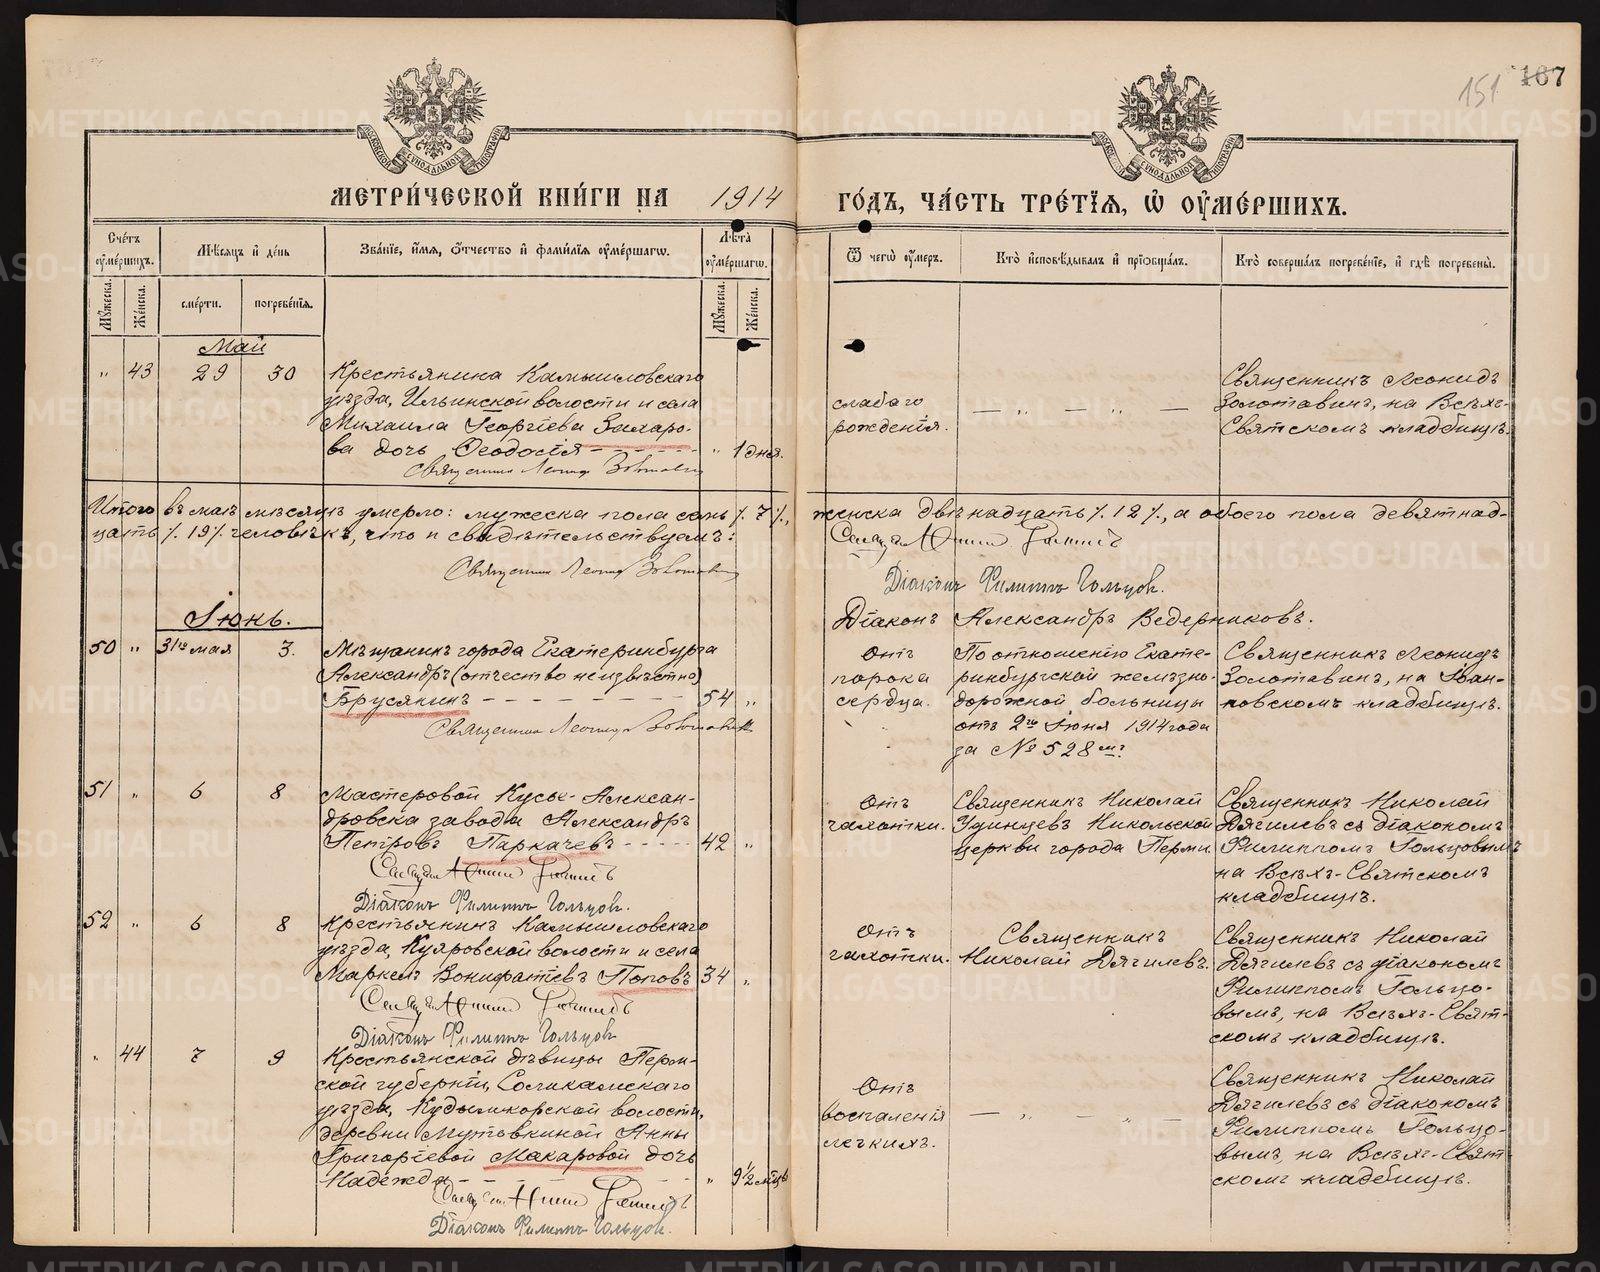 151 167
МЕТРИ́ЧЕСКОЙ КНИ́ГИ НА 1914 ГО́ДЪ, ЧА́СТЬ ТРЕ́ТЇѦ, Ѽ ОУМЕ́РШИХЪ.
Счéтъ оумéршихъ.
Мѣ́сяцъ и дéнь
Звáнїе, и́мѧ, ѻ́тчество и фамилїѧ оумéршагѡ.
Лѣта̀ оумéршагѡ.
Ѿ чегѡ̀ оу́меръ.
Ктò и́сповѣ́дывалъ и прїѡбщáлъ.
Ктò совершáлъ погребéнїе, и гдѣ̀ погребены̀.
Мужеска.
Женска.
смéрти.
погребéнїѧ.
Мужеска.
Женска.
Май
" 43 29 30
Крестьянина Камышловскаго
уѣзда, Ильинской волости и села
Михаила Георгіева Захаро-
ва дочь Ѳеодосія - - - - - " 1 дня.
Священникъ Леонидъ Золотавинъ
слабаго
рожденія.
— " — " —
Священникъ Леонидъ
Золотавинъ, на Всѣхъ-
Святскомъ кладбищѣ.
Итого въ маѣ мѣсяцѣ умерло: мужеска пола семь /. 7 /., женска двѣнадцать /. 12 /., а обоего пола девятнад-
цать /. 19 /. человѣкъ, что и свидѣтельствуемъ:
Священникъ Леонидъ Золотавинъ
Діаконъ Филиппъ Гольцовъ.
Діаконъ Александръ Ведерниковъ.
Іюнь.
50 " 31го мая 3.
Мѣщанинъ города Екатеринбурга
Александръ (отчество неизвѣстно)
Брусянинъ - - - - - - - - 54 "
Священникъ Леонидъ Золотавинъ
Отъ
порока
сердца.
По отношенію Екате-
ринбургской желѣзно-
дорожной больницы
отъ 2го Іюня 1914 года
за № 528 мъ.
Священникъ Леонидъ
Золотавинъ, на Іоан-
новскомъ кладбищѣ.
51 " 6 8
Мастеровой Кусье-Алексан-
дровска завода Александръ
Петровъ Паркачевъ - - - - - 42 "
Діаконъ Филиппъ Гольцовъ.
Отъ
чахотки.
Священникъ Николай
Удинцевъ Никольской
церкви города Перми.
Священникъ Николай
Дягилевъ съ діакономъ
Филиппомъ Гольцовымъ
на Всѣхъ-Святскомъ
кладбищѣ.
52 " 6 8
Крестьянинъ Камышловскаго
уѣзда, Куяровской волости и села
Маркелъ Вонифатіевъ Поповъ 34 "
Діаконъ Филиппъ Гольцовъ
Отъ
чахотки.
Священникъ
Николай Дягилевъ.
Священникъ Николай
Дягилевъ съ діакономъ
Филиппомъ Гольцо-
вымъ, на Всѣхъ-Свят-
скомъ кладбищѣ.
" 44 7 9
Крестьянской дѣвицы Перм-
ской губерніи, Соликамскаго
уѣзда, Кудымкорской волости,
деревни Мутовкиной Анны
Григорьевой Макаровой дочь
Надежда - - - - - - - " 9 1/2 мѣцъ
Діаконъ Филиппъ Гольцовъ.
Отъ
воспаленія
легкихъ.
— " — " —
Священникъ Николай
Дягилевъ съ діакономъ
Филиппомъ Гольцо-
вымъ, на Всѣхъ-Свят-
скомъ кладбищѣ.
METRIKI.GASO-URAL.RU